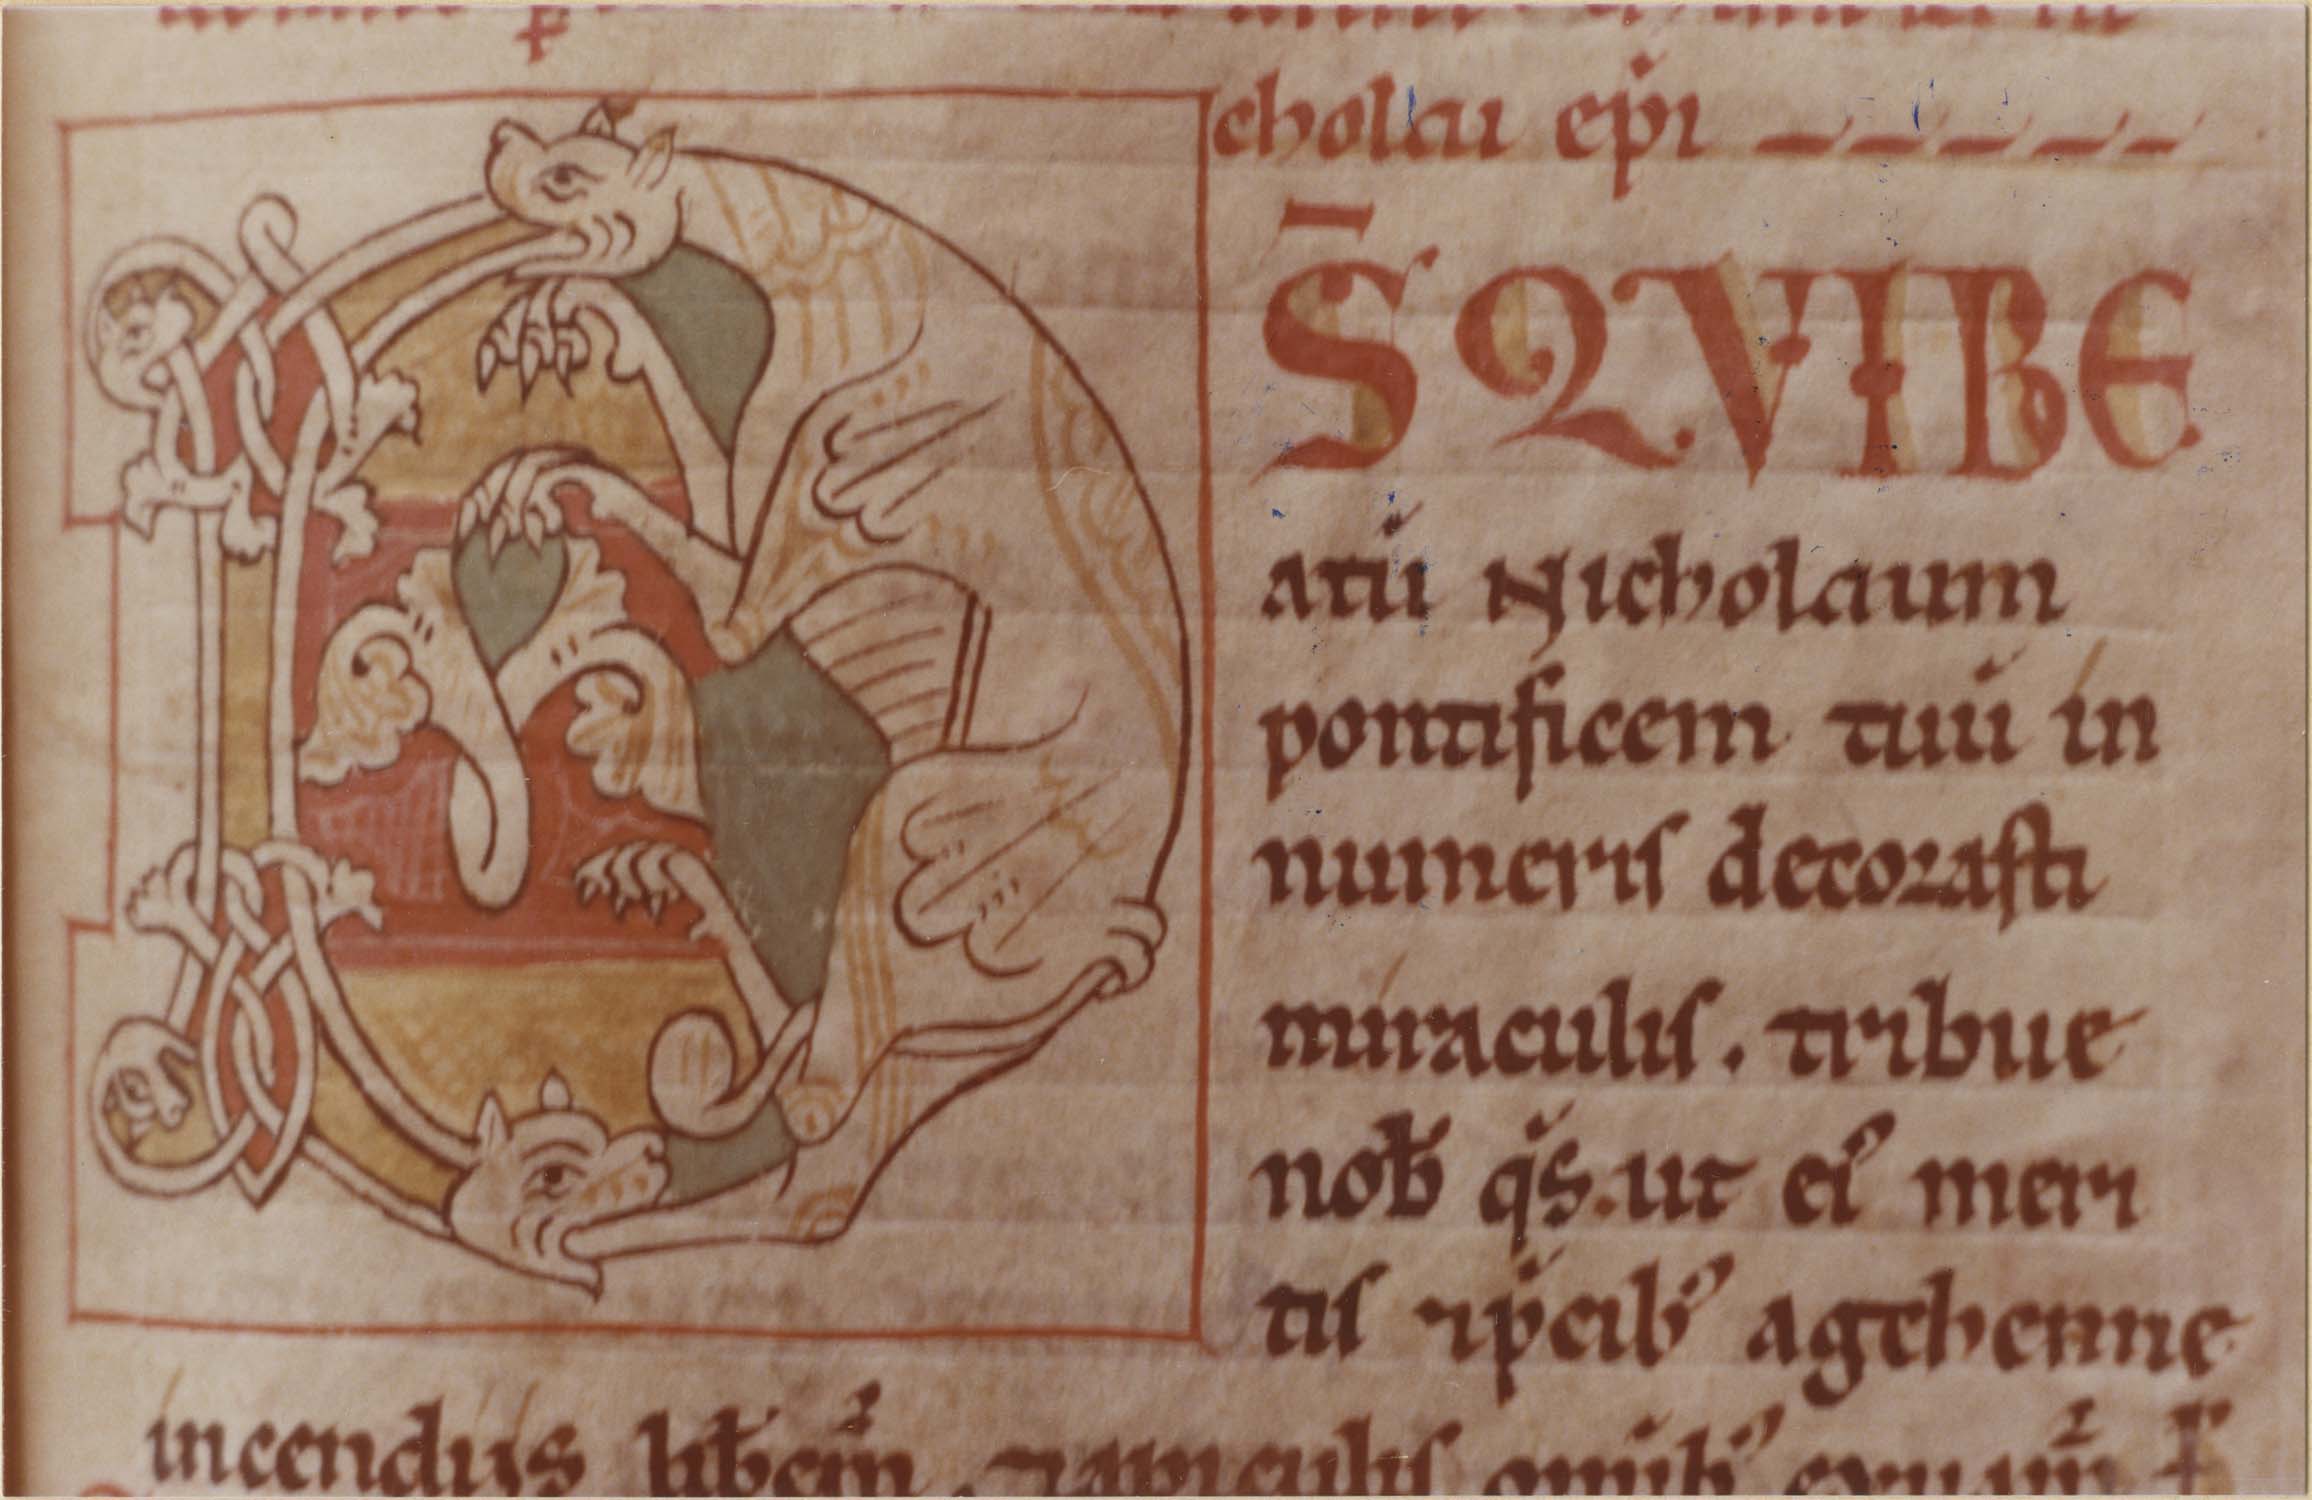 cholaii ep̄i
D
S̄ QVI BE
atū Nicholaum
pontificem tuū in
numeris decorasti
miraculis. tribue
nob̄ q̄s. ut ei' meri
tis ⁊ p̄cib' a gehenne
incendiis lib̄em̄